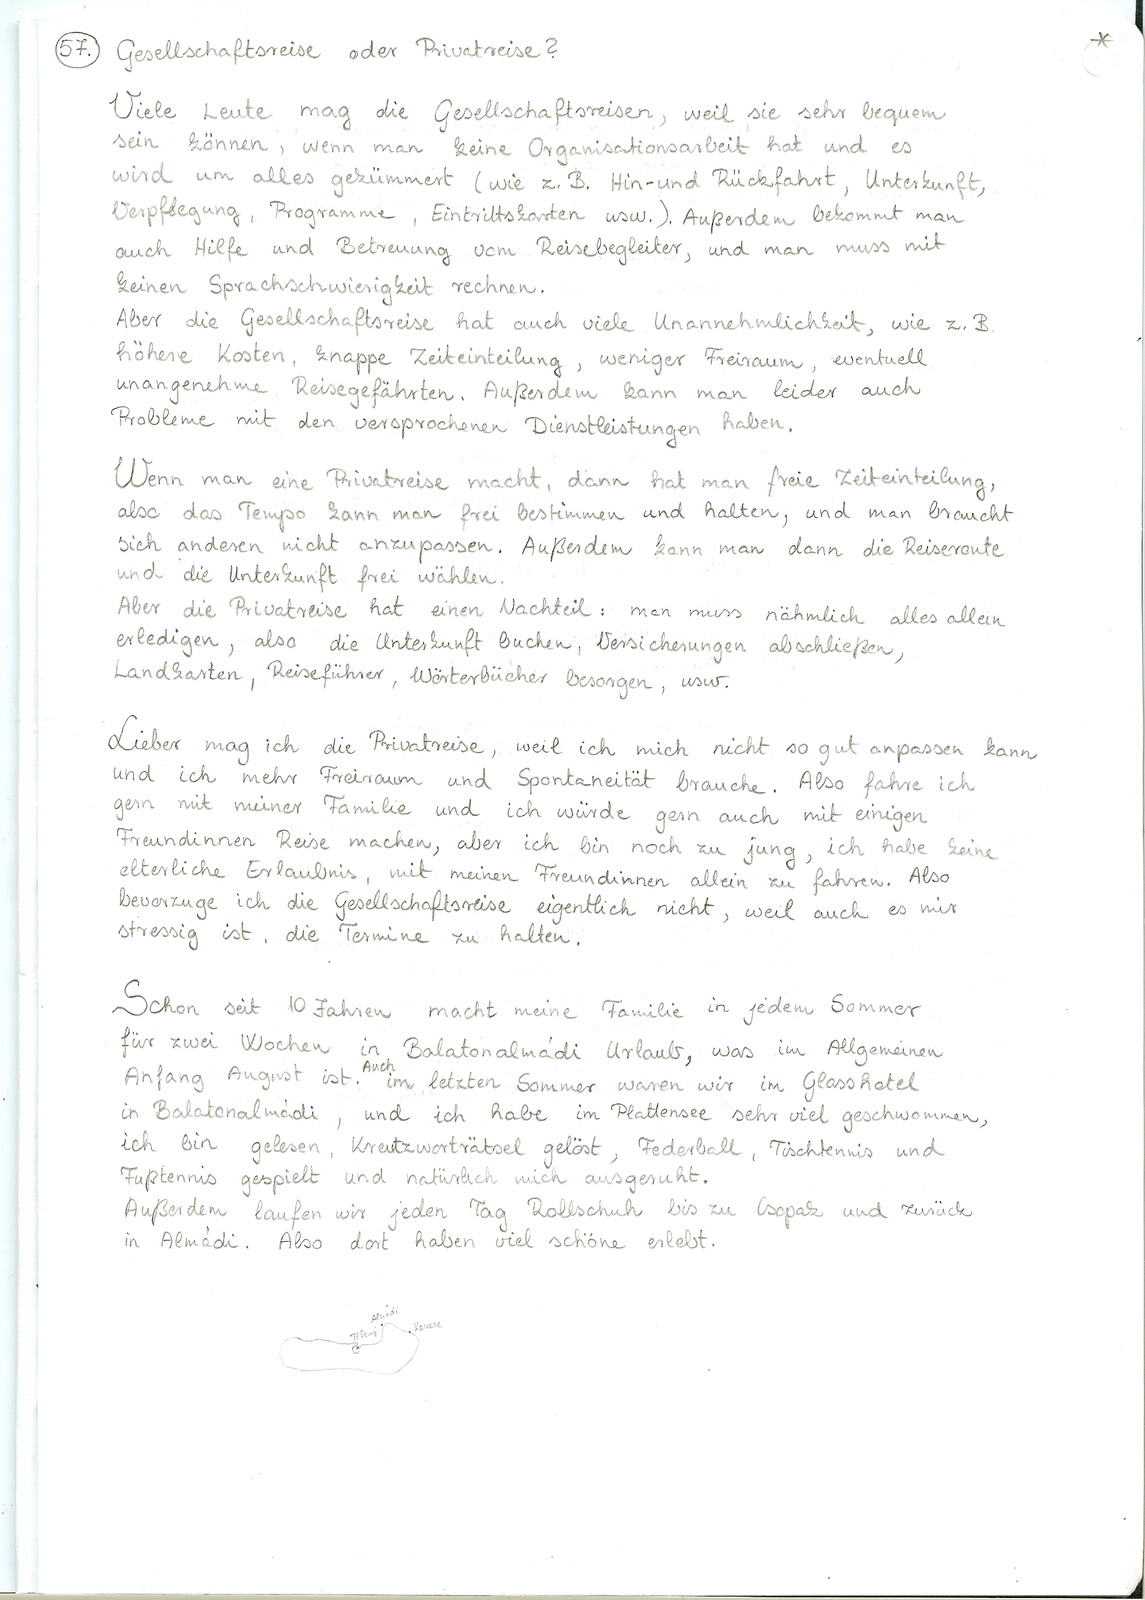 57. Gesellschaftsreise oder Privatreise?
*
Viele Leute mag die Gesellschaftsreisen, weil sie sehr bequem
sein können, wenn man keine Organisationsarbeit hat und es
wird um alles gekümmert (wie z.B. Hin-und Rückfahrt, Unterkunft,
Verpflegung, Programme, Eintrittskarten usw.). Außerdem bekommt man
auch Hilfe und Betreuung vom Reisebegleiter, und man muss mit
keinen Sprachschwierigkeit rechnen.
Aber die Gesellschaftsreise hat auch viele Unannehmlichkeit, wie z.B.
höhere Kosten, knappe Zeiteinteilung, weniger Freiraum, eventuell
unangenehme Reisegefährten. Außerdem kann man leider auch
Probleme mit den versprochenen Dienstleistungen haben.
Wenn man eine Privatreise macht, dann hat man freie Zeiteinteilung,
also das Tempo kann man frei bestimmen und halten, und man braucht
sich anderen nicht anzupassen. Außerdem kann man dann die Reiseroute
und die Unterkunft frei wählen.
Aber die Privatreise hat einen Nachteil: man muss nähmlich alles allein
erledigen, also die Unterkunft buchen, Versicherungen abschließen,
Landkarten, Reiseführer, Wörterbücher besorgen, usw.
Lieber mag ich die Privatreise, weil ich mich nicht so gut anpassen kann
und ich mehr Freiraum und Spontaneität brauche. Also fahre ich
gern mit meiner Familie und ich würde gern auch mit einigen
Freundinnen Reise machen, aber ich bin noch zu jung, ich habe keine
elterliche Erlaubnis, mit meinen Freundinnen allein zu fahren. Also
bevorzuge ich die Gesellschaftsreise eigentlich nicht, weil auch es mir
stressig ist, die Termine zu halten.
Schon seit 10 Jahren macht meine Familie in jedem Sommer
für zwei Wochen in Balatonalmádi Urlaub, was im Allgemeinen
Anfang August ist. Auch im letzten Sommer waren wir im Glasshotel
in Balatonalmádi, und ich habe im Plattensee sehr viel geschwommen,
ich bin gelesen, Kreutzworträtsel gelöst, Federball, Tischtennis und
Fußtennis gespielt und natürlich mich ausgeruht.
Außerdem laufen wir jeden Tag Rollschuh bis zu Csopak und zurück
in Almádi. Also dort haben viel schöne erlebt.
Almádi
Tihany
Kenese